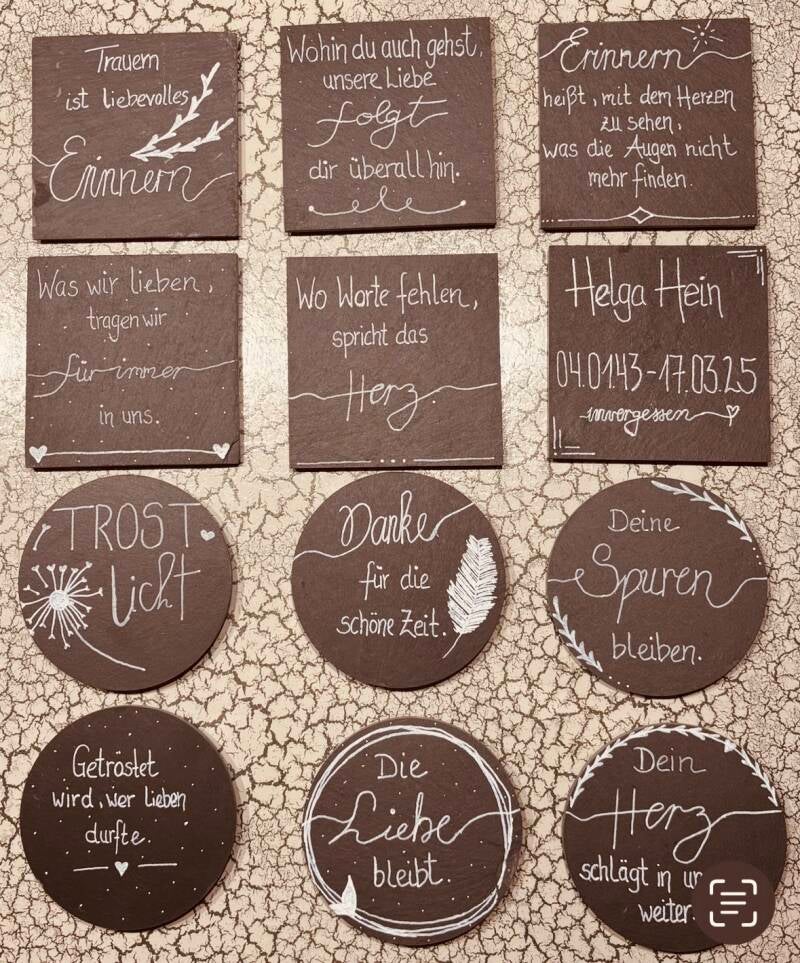 Trauern
ist liebevolles
Erinnern
Wohin du auch gehst,
unsere Liebe
folgt
dir überall hin.
Erinnern
heißt, mit dem Herzen
zu sehen,
was die Augen nicht
mehr finden.
Was wir lieben,
tragen wir
für immer
in uns.
Wo Worte fehlen,
spricht das
Herz.
Helga Hein
04.01.43-17.03.25
unvergessen
TROST
Licht
Danke
für die
schöne Zeit.
Deine
Spuren
bleiben.
Getröstet
wird, wer lieben
durfte.
Die
Liebe
bleibt.
Dein
Herz
schlägt in
weiter.